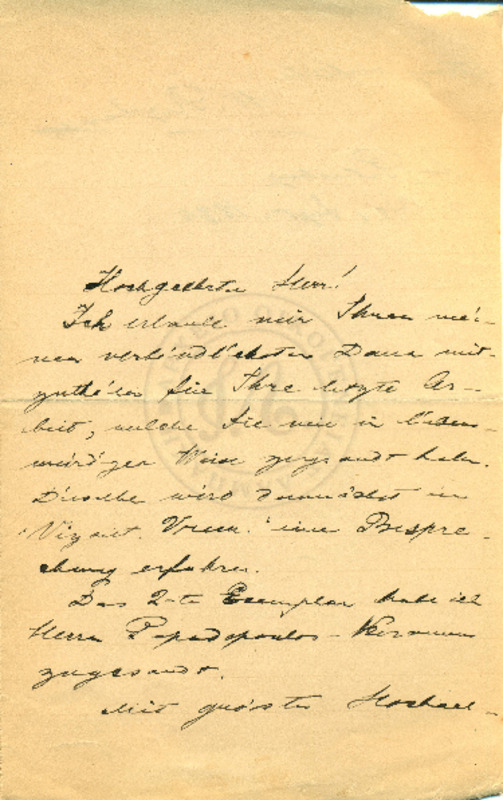 Hochgeehrter Herr!
Ich erlaube mir Ihnen mei-
nen verbindlichsten Dank mit-
zutheilen für Ihre letzte Ar-
beit, welche Sie mir in liebens-
würdiger Weise zugesandt haben.
Dieselbe wird demnächst im
"Vizant. Vrem." eine Bespre-
chung erfahren.
Das 2-te Exemplar habe ich
Herrn Papadopoulos-Kerameus
zugesandt.
Mit grösster Hochach-